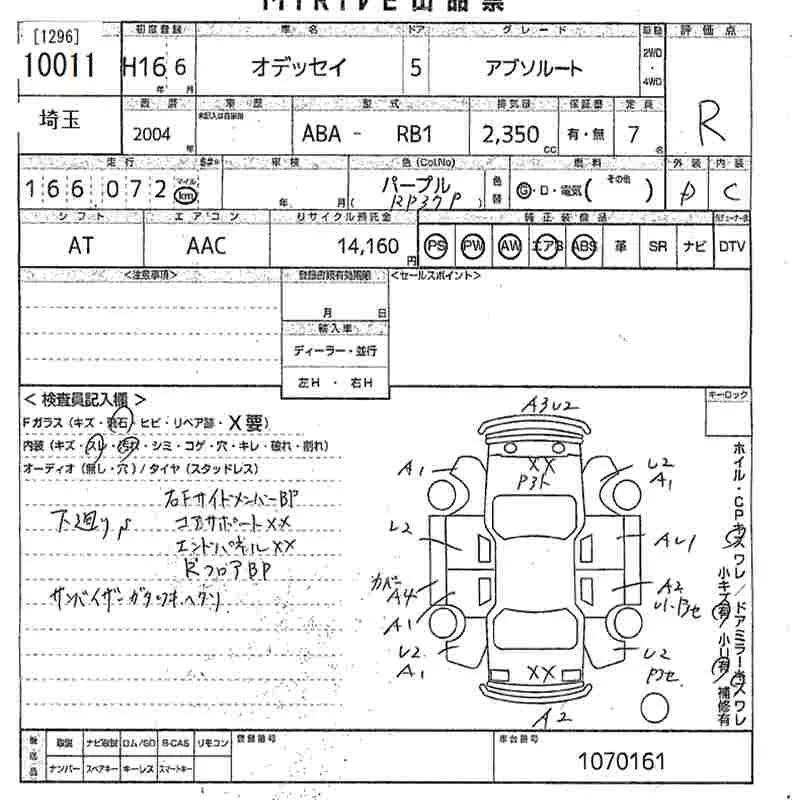 MIRIVE出品票
[1296]
10011
初度登録 車名 ドア グレード 駆動 評価点
H16 6 オデッセイ 5 アブソルート 2WD・4WD R
年 月
埼玉
車歴 型式 排気量 保証書 定員
2004 年 ABA - RB1 2,350 CC 有・無 7 名
走行 車検 色(Col.No) 燃料 外装 内装
166,072 マイル km 年 月 パープル 色替 G・D・電気( その他 ) D C
(RP37P)
シフト エアコン リサイクル預託金 純正装備品
AT AAC 14,160 円 PS PW AW エアB ABS 革 SR ナビ DTV
<注意事項> <セールスポイント>
月 日
輸入車
ディーラー・並行
左H ・ 右H
<検査員記入欄> キーロック
Fガラス(キズ・飛石・ヒビ・リペア跡・X要)
内装(キズ・スレ・汚れ・シミ・コゲ・穴・キレ・破れ・割れ)
オーディオ(無し・穴)/タイヤ(スタッドレス)
右FサイドメンバーBP
下廻りS
コアサポートXX
エンドパネルXX
RフロアBP
サンバイザーガタツキ.ヘタリ
A3U2
XX
A1 U2
A1
U2 AU1
カバー
A4 A2
A1
U2 U2
A1
XX
A2
ホイル・CPキズワレ/ドアミラーキズワレ
小キズ有 小U有 補修有
取説 ナビ取説 ロム/SD B-CAS リモコン 登録番号 車台番号
ナンバー スペアキー キーレス スマートキー 1070161